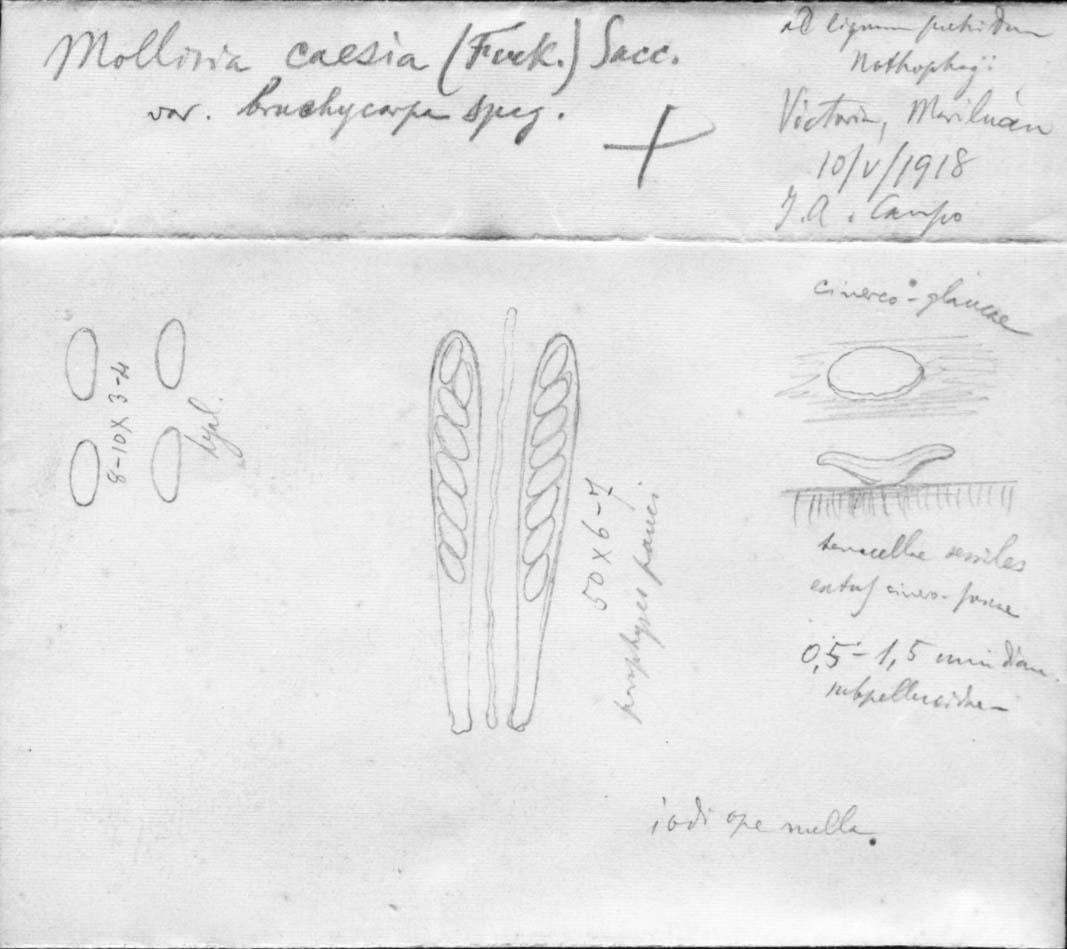 Mollisia caesia (Fuck.) Sacc.
var. brachycarpa Speg.
ad lignum putridum
Nothophagi
Victoria, Mariluán
10/V/1918
J.A. Campo
cinereo-glaucae
8-10 x 3-4
hyal.
50 x 6-7
paraphyses pauci
sessiles
extus cinereo-fuscae
0,5-1,5 mm diam.
subpellucidae
iodi ope nulla.